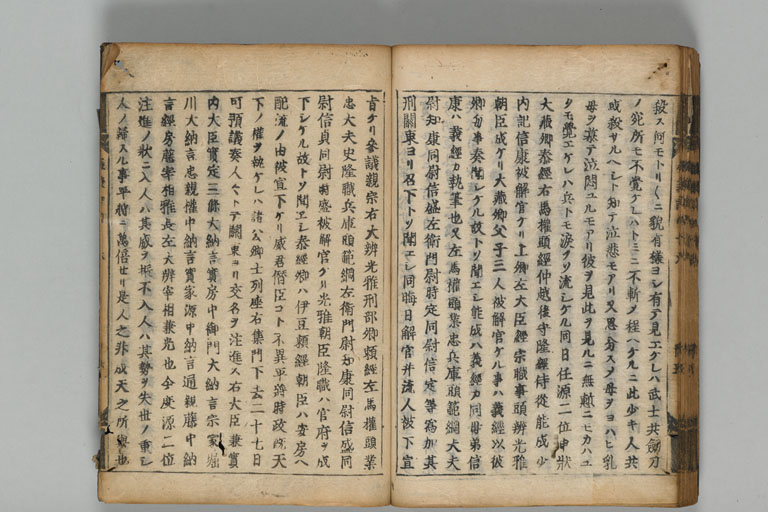 殺ス何モトリ〱ニ貌有様ヨシ有テ見エケレハ武士共劔刀
ノ宛所モ不覚ケレハトミニ不斬ノ程ヘケルニ此少キ人共
或殺サルヘシト知テ泣悲モアリ又思分スノ母ヲヨハヒ乳
母ヲ慕テ泣悶ユルモアリ彼ヲ見此ヲ見ルニ無慙ニヒカハユ
クモ覚エケレハ兵トモ涙クソ流シケル同日任源二位申状
大蔵卿泰経右馬権頭経仲越後守隆経侍従能成少
内記信康被解官ケリ上卿左大臣経宗職事頭辨光雅
朝臣成ケリ大蔵卿父子三人被解官ケル事ハ義経以彼
卿毎事奏聞シケル故トソ聞エシ能成ハ義経カ同母弟信
康ハ義経カ執筆也又左馬権頭業忠兵庫頭範綱大夫
尉知康同尉信盛左衛門尉時定同尉信定等寫加其
刑關東ヨリ召下トソ聞エシ同晦日解官并流人被下宣
旨ケリ参議親宗右大辨光雅刑部卿頼経左馬権頭業
忠大夫史隆職兵庫頭範綱左衛門尉知康同尉信盛同
尉信貞同尉時盛被解官ケリ光雅朝臣隆職ハ官府ヲ成
下シケル故トソ聞エシ泰経卿ハ伊豆頼経朝臣ハ安房ヘ
配流ノ由被宣下ケリ威君僭臣コト不異平将時政既天
下ノ権ヲ執ケレハ諸公卿士列座右集門下去二十七日
可預議奏人々トテ關東ヨリ交名ヲ注進ス右大臣兼實
内大臣實定三條大納言實房中御門大納言宗家堀
川大納言忠親権中納言實家源中納言通親藤中納
言経房藤宰相雅長左大辨宰相兼光也今度源二位
注進ノ状ニ入人ハ其威ヲ振不入人ハ其勢ヲ失世ノ重シ
人ノ歸スル事平将ニ萬倍セリ是人之非成天之所與也